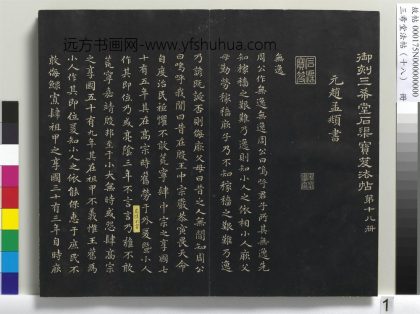 远方书画网-www.yfshuhua.com
故帖000175N000000000
三希堂法帖(十八) 冊
御刻三希堂石渠寶笈法帖 第十八冊
元趙孟頫書
無逸
周公作無逸無逸周公曰嗚呼君子所其無逸先
知稼穡之艱難乃逸則知小人之依相小人厥父
母勤勞稼穡厥子乃不知稼穡之艱難乃逸
乃諺既誕否則侮厥父母曰昔之人無聞知周公
曰嗚呼我聞曰昔在殷王中宗嚴恭寅畏天命
自度治民祗懼不敢荒寧肆中宗之享國七
十有五年其在高宗時舊勞于外爰暨小人
作其即位乃或亮陰三年不言言乃雍不敢
荒寧嘉靖殷邦至于小大無時或怨肆高宗
之享國五十有九年其在祖甲不義惟王舊為
小人作其即位爰知小人之依能保惠于庶民不
敢侮鰥寡肆祖甲之享國三十有三年自時厥
1